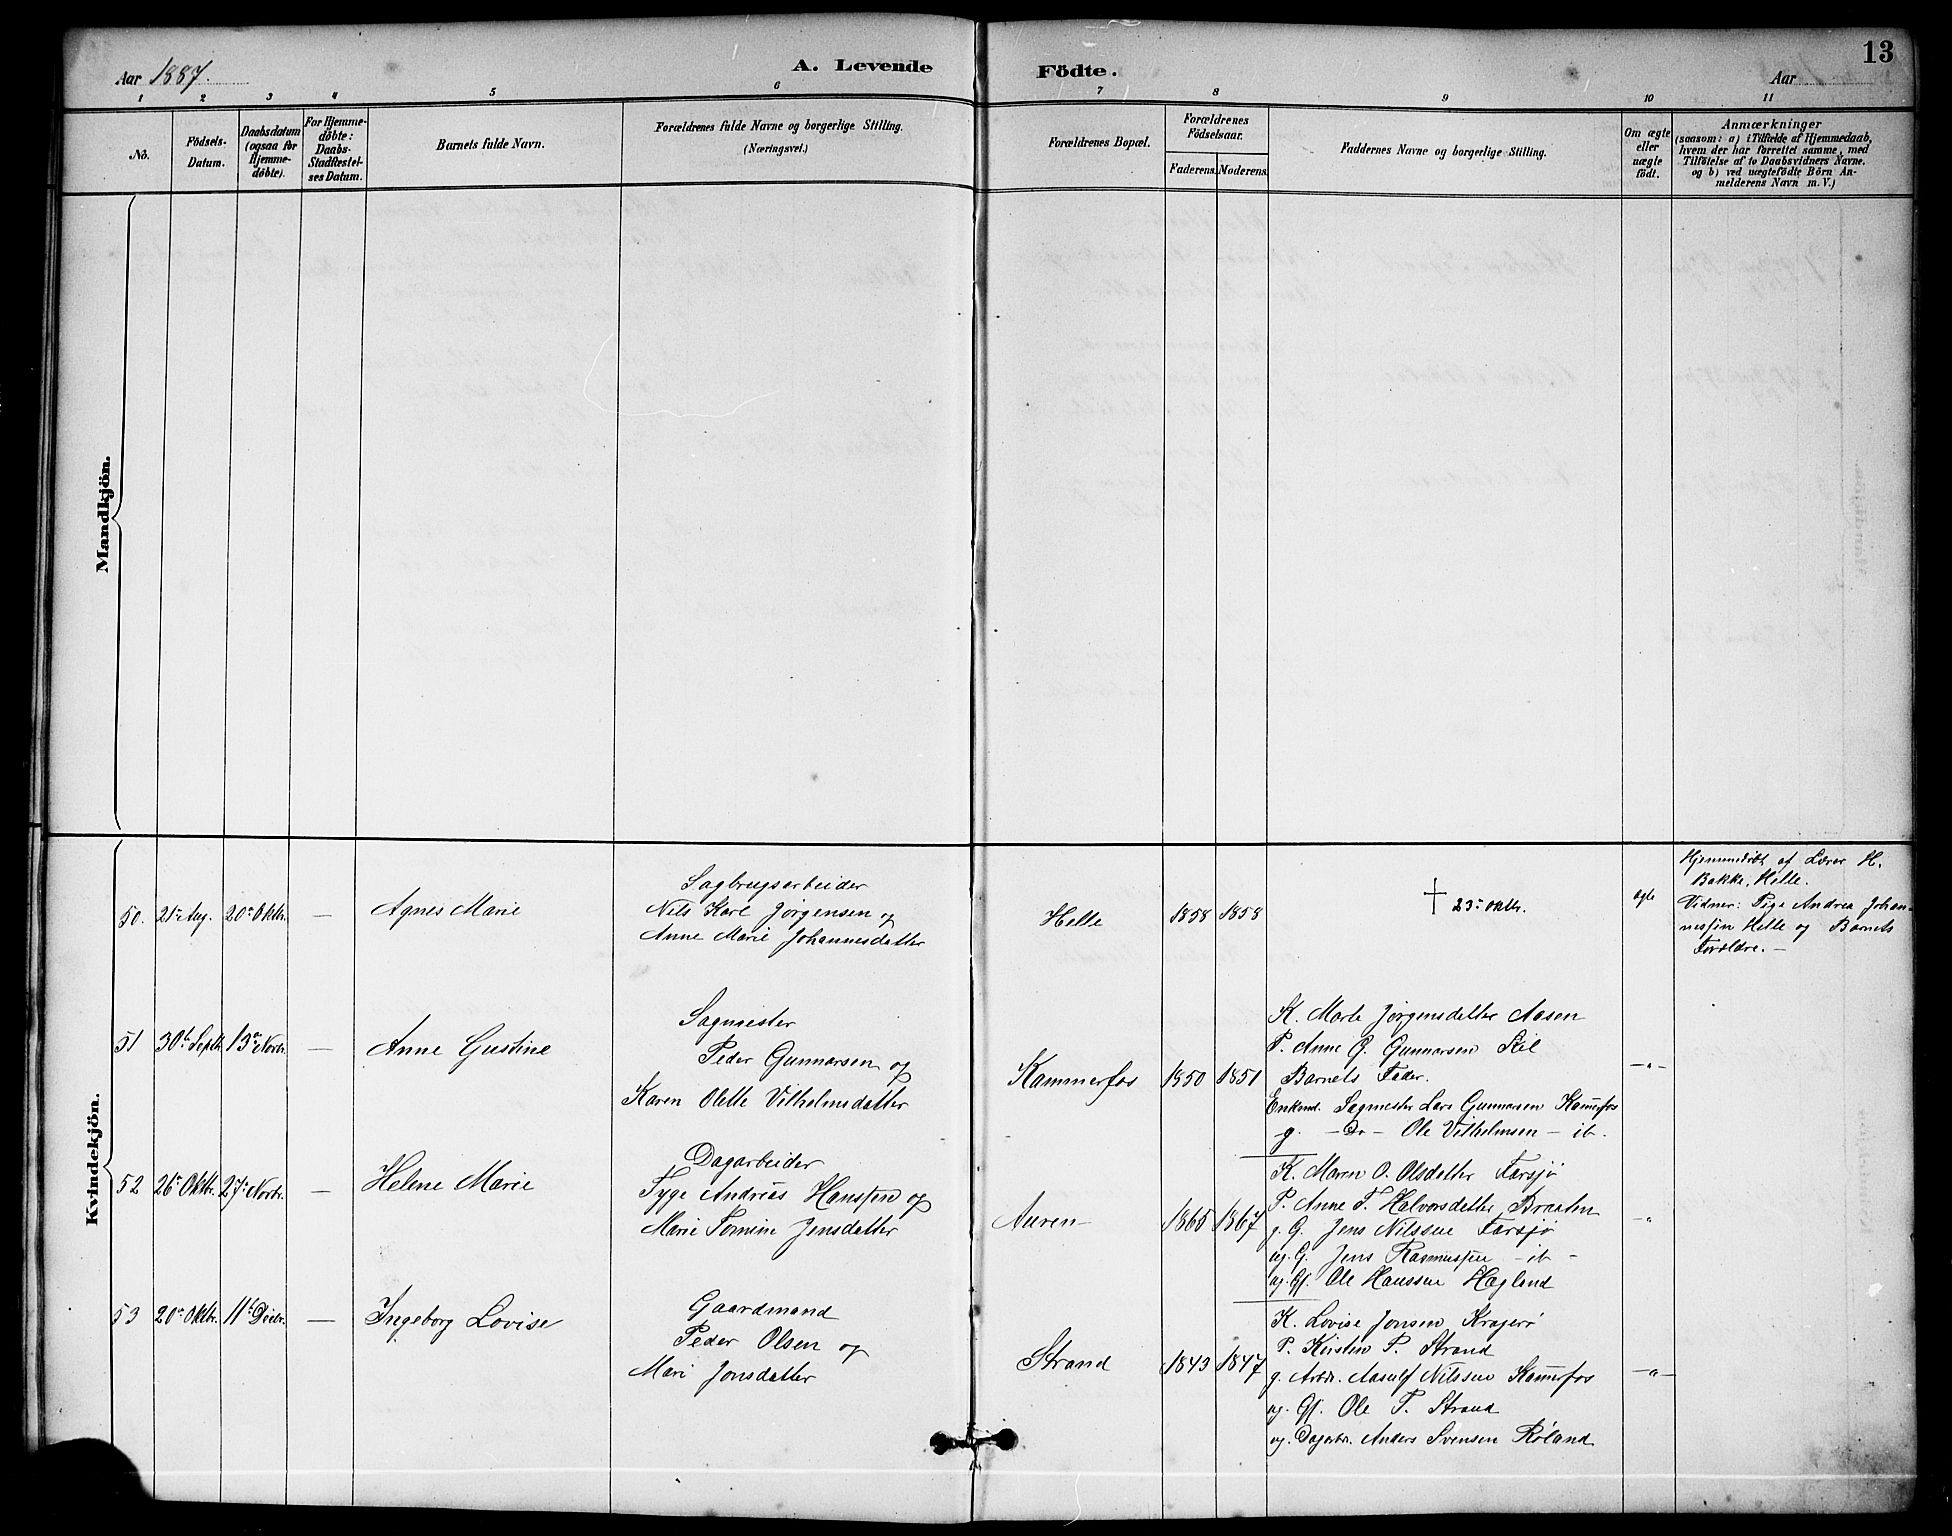 13
Aar 1887.
A. Levende Födte.
Aar
1 2 3 4 5 6 7 8 9 10 11
No.
Födsels-Datum.
Daabsdatum (ogsaa for Hjemme-döbte).
For Hjemme-döbte: Daabs-Stadfæstel-ses Datum.
Barnets fulde Navn.
Forældrenes fulde Navne og borgerlige Stilling.
(Næringsvei.)
Forældrenes Bopæl.
Forældrenes Födselsaar.
Faderens. Moderens.
Faddernes Navne og borgerlige Stilling.
Om ægte eller uægte födt.
Anmærkninger
(saasom: a) i Tilfælde af Hjemmedaab,
hvem der har forrettet samme, med
Tilföielse af to Daabsvidners Navne.
og b) ved uægtefödte Börn An-
melderens Navn m. V.)
Mandkjön.
Kvindekjön.
50. 21de Aug. 20de Oktbr. — Agnes Marie
Sagbrugsarbeider
Nils Karl Jørgensen og
Anne Marie Johannesdatter
Helle 1858 1858
† 23de Oktbr.
ægte
Hjemmedøbt af Lærer H.
Bakke, Helle.
Vidner: Pige Andrea Johan-
nessen Helle og Barnets
Forældre. —
51 30te Septbr. 13de Novbr. — Anne Gustine
Sagmester
Peder Gunnarsen og
Karen Olette Vilhelmsdatter
Kammerfos 1850 1851
K. Marte Jørgensdatter Aasen
P. Anne G. Gunnarsen Kil
Barnets Fader.
Enkemd. Sagmester Lars Gunnarsen Kam̄erfos
g. — Do — Ole Vilhelmsen — ib.
—"—
52 26de Oktbr. 27de Novbr. — Helene Marie
Dagarbeider
Tyge Andreas Hanssen og
Marie Tomine Jensdatter
Auren 1865 1867
K. Maren O. Olsdatter Farsjø
P. Anne T. Halvorsdatter Braaten
g. G. Jens Nilssen Farsjø
ug. G. Jens Rasmussen — ib —
ug. Gf. Ole Hanssen Hægland
—"
53 20de Oktbr. 11te Decbr. — Ingeborg Lovise
Gaardmand
Peder Olsen og
Mari Jonsdatter
Strand 1843 1847
K. Lovise Jonsen Kragerø
P. Kirsten P. Strand
g. Arbdr. Aasulf Nilssen Kam̄erfos
ug. Gf. Ole P. Strand
ug. Dagarbr. Anders Svensen Røland
—"—